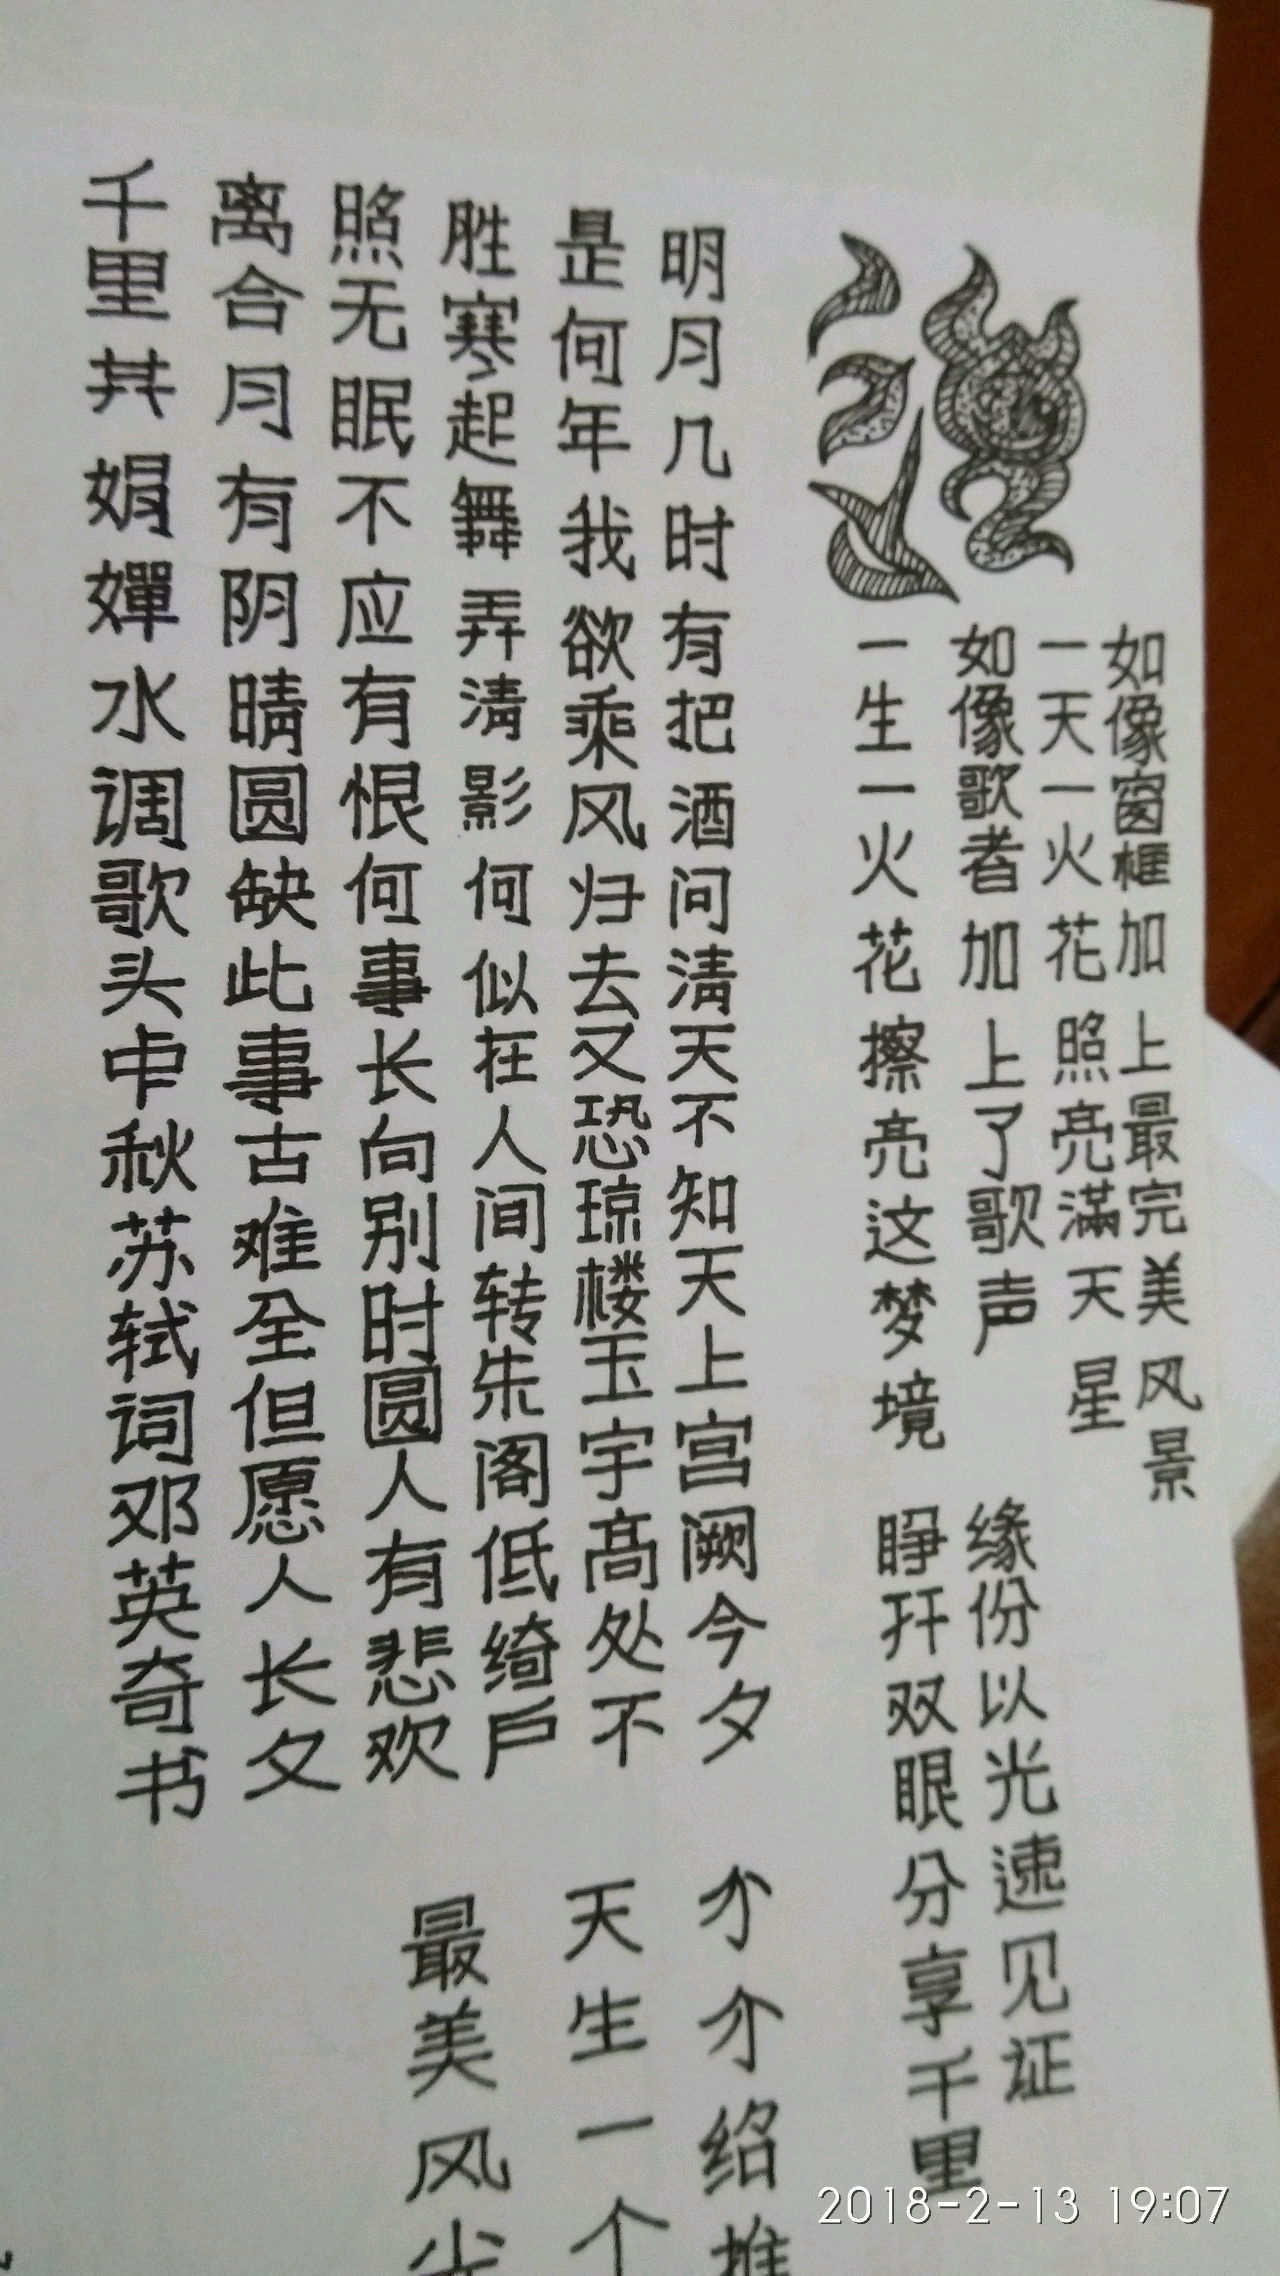 如像窗框加上最完美风景
一天一火花照亮滿天星
如像歌者加上了歌声
缘份以光速见证
一生一火花擦亮这梦境
睁开双眼分享千里
明月几时有把酒问清天不知天上宫阙今夕
是何年我欲乘风归去又恐琼楼玉宇高处不
胜寒起舞弄清影何似在人间转朱阁低绮户
照无眠不应有恨何事长向别时圆人有悲欢
离合月有阴晴圆缺此事古难全但愿人长久
千里共娟嬋水调歌头中秋苏轼词邓英奇书
介介绍推
天生一个
最美风
2018-2-13 19:07